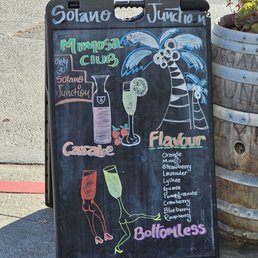 Solano Junction
Mimosa
Club
Only @
Solano
Junction
Carafe
Flavour
Orange
Mango
Strawberry
Lavender
Lychee
Guava
Pomegranate
Cranberry
Blueberry
Raspberry
Bottomless